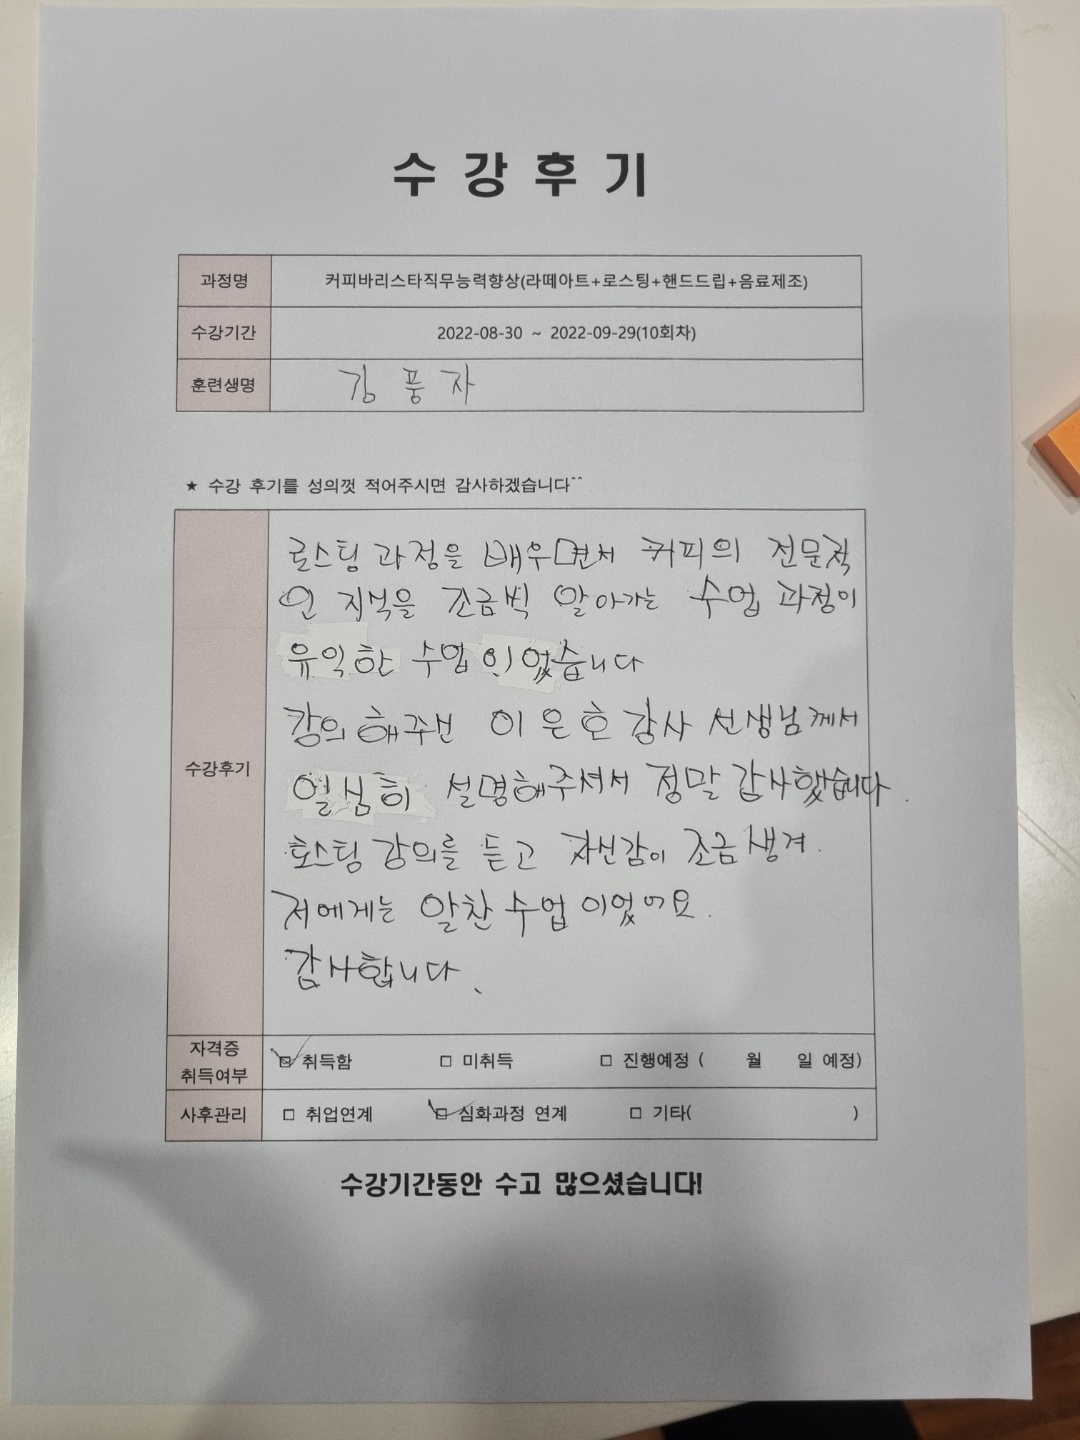 수강후기
과정명 커피바리스타직무능력향상(라떼아트+로스팅+핸드드립+음료제조)
수강기간 2022-08-30 ~ 2022-09-29(10회차)
훈련생명 김풍자
★ 수강 후기를 성의껏 적어주시면 감사하겠습니다^^
수강후기
로스팅 과정을 배우면서 커피의 전문적
인 지식을 조금씩 알아가는 수업 과정이
유익한 수업 이었습니다
강의 해주번 이은호 강사 선생님께서
열심히 설명해주셔서 정말 감사했습니다.
로스팅 강의를 듣고 자신감이 조금 생겨.
저에게는 알찬 수업 이었어요.
감사합니다.
자격증 취득여부 □ 취득함 □ 미취득 □ 진행예정 ( 월 일 예정)
사후관리 □ 취업연계 □ 심화과정 연계 □ 기타( )
수강기간동안 수고 많으셨습니다!